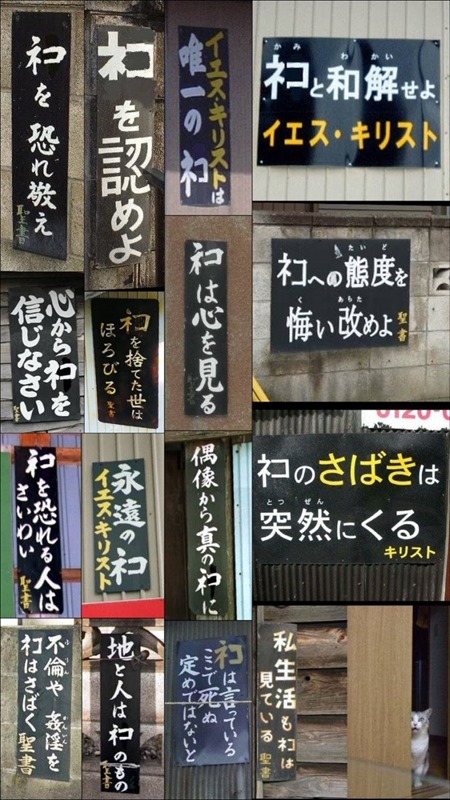 ネコを恐れ敬え
聖書
ネコを認めよ
イエス・キリストは
唯一のネコ
かみ わかい
ネコと和解せよ
イエス・キリスト
心からネコを
信じなさい
聖書
ネコを捨てた世は
ほろびる
聖書
ネコは心を見る
たいど
ネコへの態度を
く あらた
悔い改めよ
聖書
ネコを恐れる人は
さいわい
聖書
永遠のネコ
イエスキリスト
偶像から真のネコに
0120-0
ネコのさばきは
とつ ぜん
突然にくる
キリスト
不倫や姦淫を
ネコはさばく 聖書
地と人はネコのもの
ネコは言っている
ここで死ぬ
定めではないと
私生活もネコは
見ている 聖書